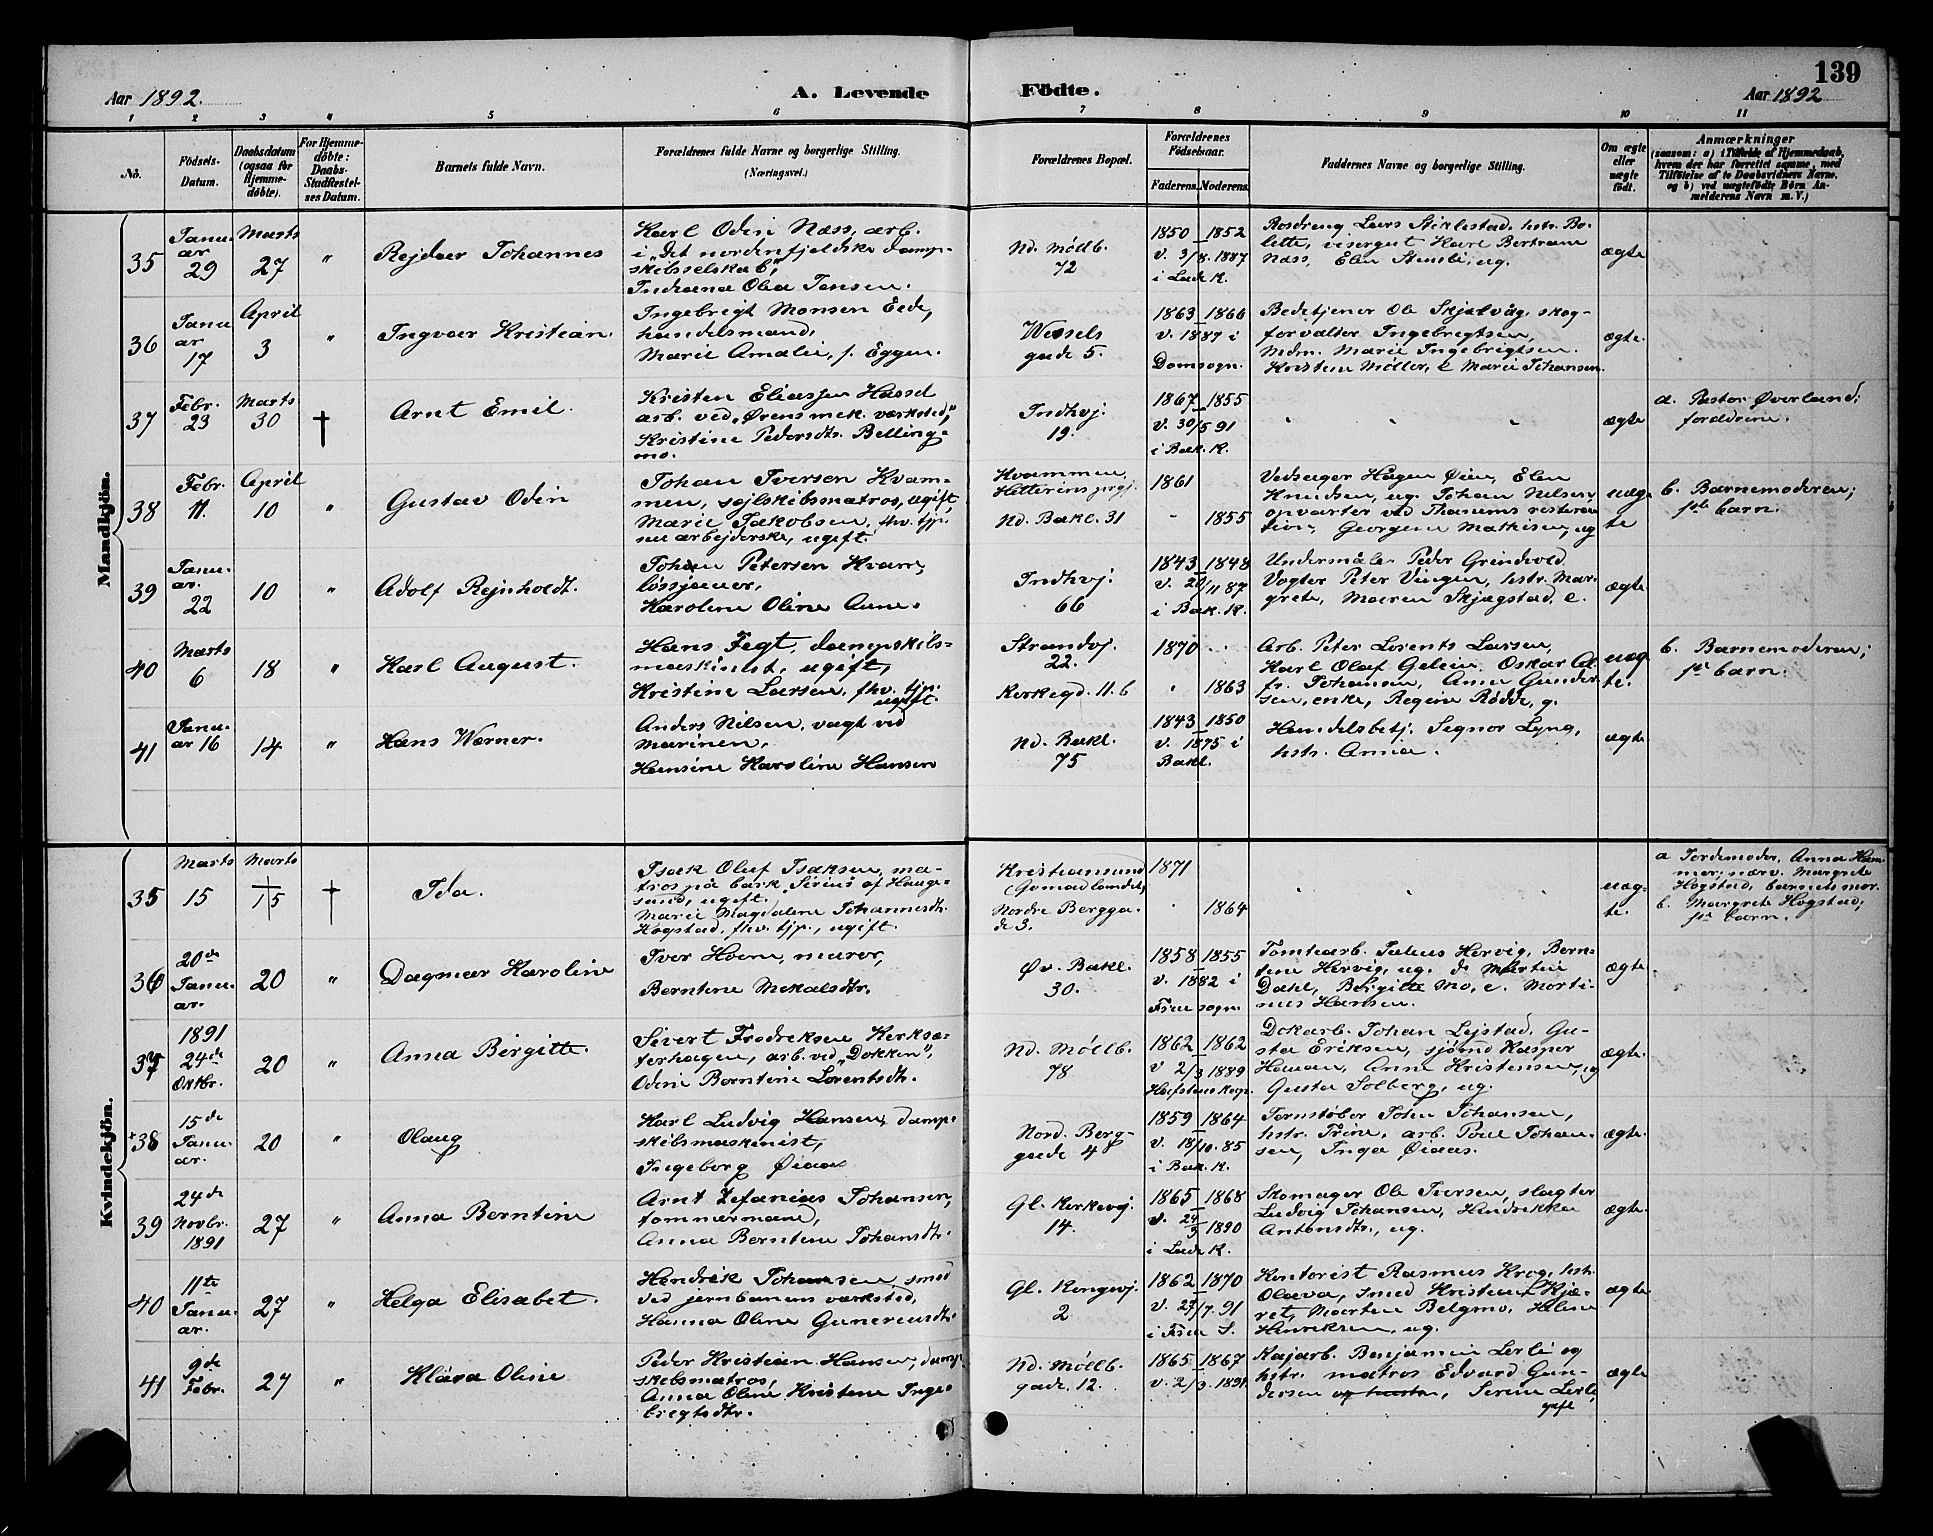 139
Aar 1892.
A. Levende
Födte.
Aar 1892
1 2 3 4 5 6 7 8 9 10 11
No.
Födsels-
Datum.
Daabsdatum
(ogsaa for
Hjemme-
döbte).
For Hjemme-
döbte:
Daabs-
Stadfæstel-
ses Datum.
Barnets fulde Navn.
Forældrenes fulde Navne og borgerlige Stilling.
(Næringsvei.)
Forældrenes Bopæl.
Forældrenes
Födselsaar.
Faderens. Moderens.
Faddernes Navne og borgerlige Stilling.
Om ægte
eller
uægte
födt.
Anmærkninger
(saasom: a) i Tilfælde af Hjemmedaab,
hvem der har forrettet samme, med
Tilföielse af to Daabsvidners Navne,
og b) ved uægtefödte Börn An-
melderens Navn m. V.)
Mandkjön.
35
Janu-
ar
29
Marts
27
"
Rejdar Johannes
Karl Odin Næss, arb.
i "Det nordenfjeldske damp-
skibsselskab",
Indiana Olea Jensen.
Nd. Møllb.
72
1850 – 1852
v. 3/8. 1887
i Lade K.
Lars Stiklestad, hstr. Bo-
lette, visergut Karl Bertram
Næss, Elen Stensli, ug.
ægte
36
Janu
ar
17
April
3
"
Ingvar Kristian.
Ingebrigt Monsen Eide,
handelsmand,
Marie Amalie, f. Eggen.
Wessels
gade 5.
1863 – 1866
v. 1887 i
Domsogn.
Bedetjener Ole Skjelvåg, skog-
forvalter Ingebrigtsen,
Mdm. Marie Ingebrigtsen.
Kristen Møller, & Marie Johansen.
ægte.
37
Febr.
23
Marts
30
†
Arnt Emil.
Kristen Eliassen Hassel
arb. ved "Ørens mek. værksted",
Kristine Pedersdtr. Belling-
mo.
Indhvj.
19.
1867 – 1855
v. 30/5 91
i Bak. K.
" " "
ægte
a. Pastor Øverland;
forældrene.
38
Febr.
11.
April
10
"
Gustav Odin
Johan Iversen Kvam-
men, sejlskibsmatros, ugift,
Marie Jakobsen, fhv. tjp.
nu arbejderske, ugift.
Kvammen,
Hitterens prgj.
Nd. Bakl. 31
1861
" 1855
Vedsager Hågen Øien, Elen
Knudsen, ug. Johan Nilsen,
opvarter ved Thanums restaura
tion, Georgine Mathisen, ug
uæg-
te
b. Barnemoderen;
barn.
39
Janu-
ar.
22
10
"
Adolf Rejnholdt.
Johan Petersen Kvam,
løssjauer,
Karoline Oline Aune.
Indhvj.
66
1843 – 1848
v. 20/11 87
i Bak. K.
Undermåler Peder Grindvold
Vagter Peter Vingen, hstr. Mar-
grete, Maren Skjægstad, e.
ægte.
40
Marts
6
18
"
Karl August.
Hans Fegt, dampskibs-
maskinist, ugift,
Kristine Larsen, fhv. tjp.
ugift.
Strandvj.
22.
Kirkegd. 11. b
1870
" 1863
Arb. Peter Lorents Larsen,
Karl Olaf Gelein, Oskar Al
fr. Johansen, Anne Gunder
sen, enke, Regine Rødde, g.
uæg-
te.
b. Barnemoderen;
barn.
41
Janu-
ar 16
14
"
Hans Werner.
Anders Nilsen, vagt ved
Marinen,
Hansine Karoline Hansen
Nd. Bakl.
75
1843 – 1850
v. 1875 i
Bakl.
Handelsbetj. Signor Lyng,
hstr. Anna.
ægte
Kvindekjön.
35
Marts
15
Marts
15
†
Ida.
Isak Oluf Isaksen, ma-
tros på bark "Sirius" af Hauge-
sund, ugift.
Marie Magdalene Johannesdtr.
Hogstad, fhv. tjp., ugift.
Kristiansund
(Gomalandet)
Nordre Bergga-
de 3.
1871
" 1864
" " "
uæg-
te.
a Jordemoder, Anna Ham-
mer; nærv. Margrete
Hogstad, barnets mor.
b. Margrete Hogstad;
barn.
36
20de
Janu-
ar.
20
"
Dagmar Karoline
Iver Hoem, murer,
Berntine Mikalsdtr.
Øv. Bakl.
30.
1858 – 1855
v. 1882 i
Frue sogn.
Tomtearb. Julius Hervig, Bern-
tine Hervig, ug. d. Martin
Dahl, Birgitte Mo, e. Morti-
nus Hansen.
ægte
37
1891
24de
Oktbr.
20
"
Anna Birgitte.
Sivert Fredriksen Kirksæ-
terhagen, arb. ved "Dokken",
Odin Berntine Lorentsdtr.
Nd. Møllb.
78
1862 – 1862
v 2/3 1889
Dokarb. Johan Lejstad, Gu-
sta Eriksen, sjømd Kasper
Haman, Anne Kristensen, ug
Gusta Solberg, ug.
ægte.
38
15de
Janu-
ar.
20
"
Olaug
Karl Ludvig Hansen, damp-
skibsmaskinist,
Ingeborg Øiaas
Nord. Berg-
gade 4
1859 – 1864
v. 18/10. 85
i Bak. K.
Jernstøber John Johansen,
hstr. Trine, arb. Paul Johan-
sen, Inga Øiaas.
ægte.
39
24de
Novbr.
1891
27
"
Anna Berntine
Arnt Zefanias Johansen,
tømmermand,
Anna Berntine Johansdtr.
Gl. Kirkevj.
14.
1865 – 1868
v. 24/3 1890
i Lade K.
Skomager Ole Iversen, slagter
Ludvig Johansen, Hendrikke
Antonsdtr., ug.
ægte.
40
11te
Janu-
ar.
27
"
Helga Elisabet.
Hendrik Johansen, smed
ved jernbanens værksted,
Hanna Oline Gunneriusdtr.
Gl. Kongevj.
2
1862 – 1870
v. 27/7. 91
i Frue S.
Kontorist Rasmus Krog, hstr.
Olava, smed Kristian Kjæ-
ret, Marten Belgmo, Heline
Henriksen, ug.
ægte
41
9de
Febr.
27
"
Klara Oline
Peder Kristian Hansen, damp
skibsmatros,
Anna Oline Kristine Inge-
brigtsdtr.
Nd. Møllb.
gade. 12.
1865. – 1867
v. 2/3. 1891.
Kajarb. Benjamin Lerli og
hstr. matros Edvard Gun-
dersen Serine Lerli,
ugift
ægte